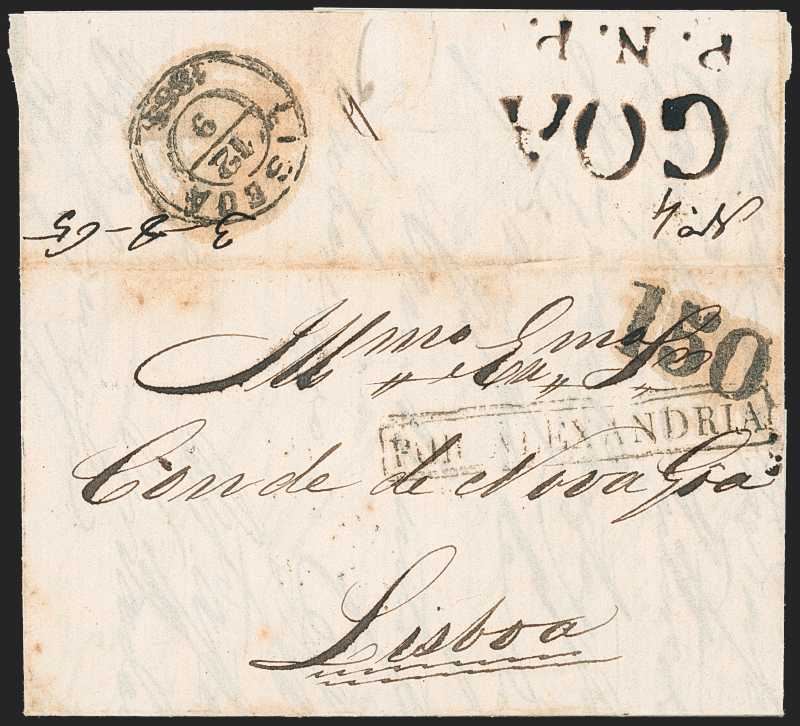 P. N. P.
GOA
LISBOA
12
9
1865
3-8-65
150
Illmo Exmo Snr
POR ALEXANDRIA
Conde de Nova Goa
Lisboa